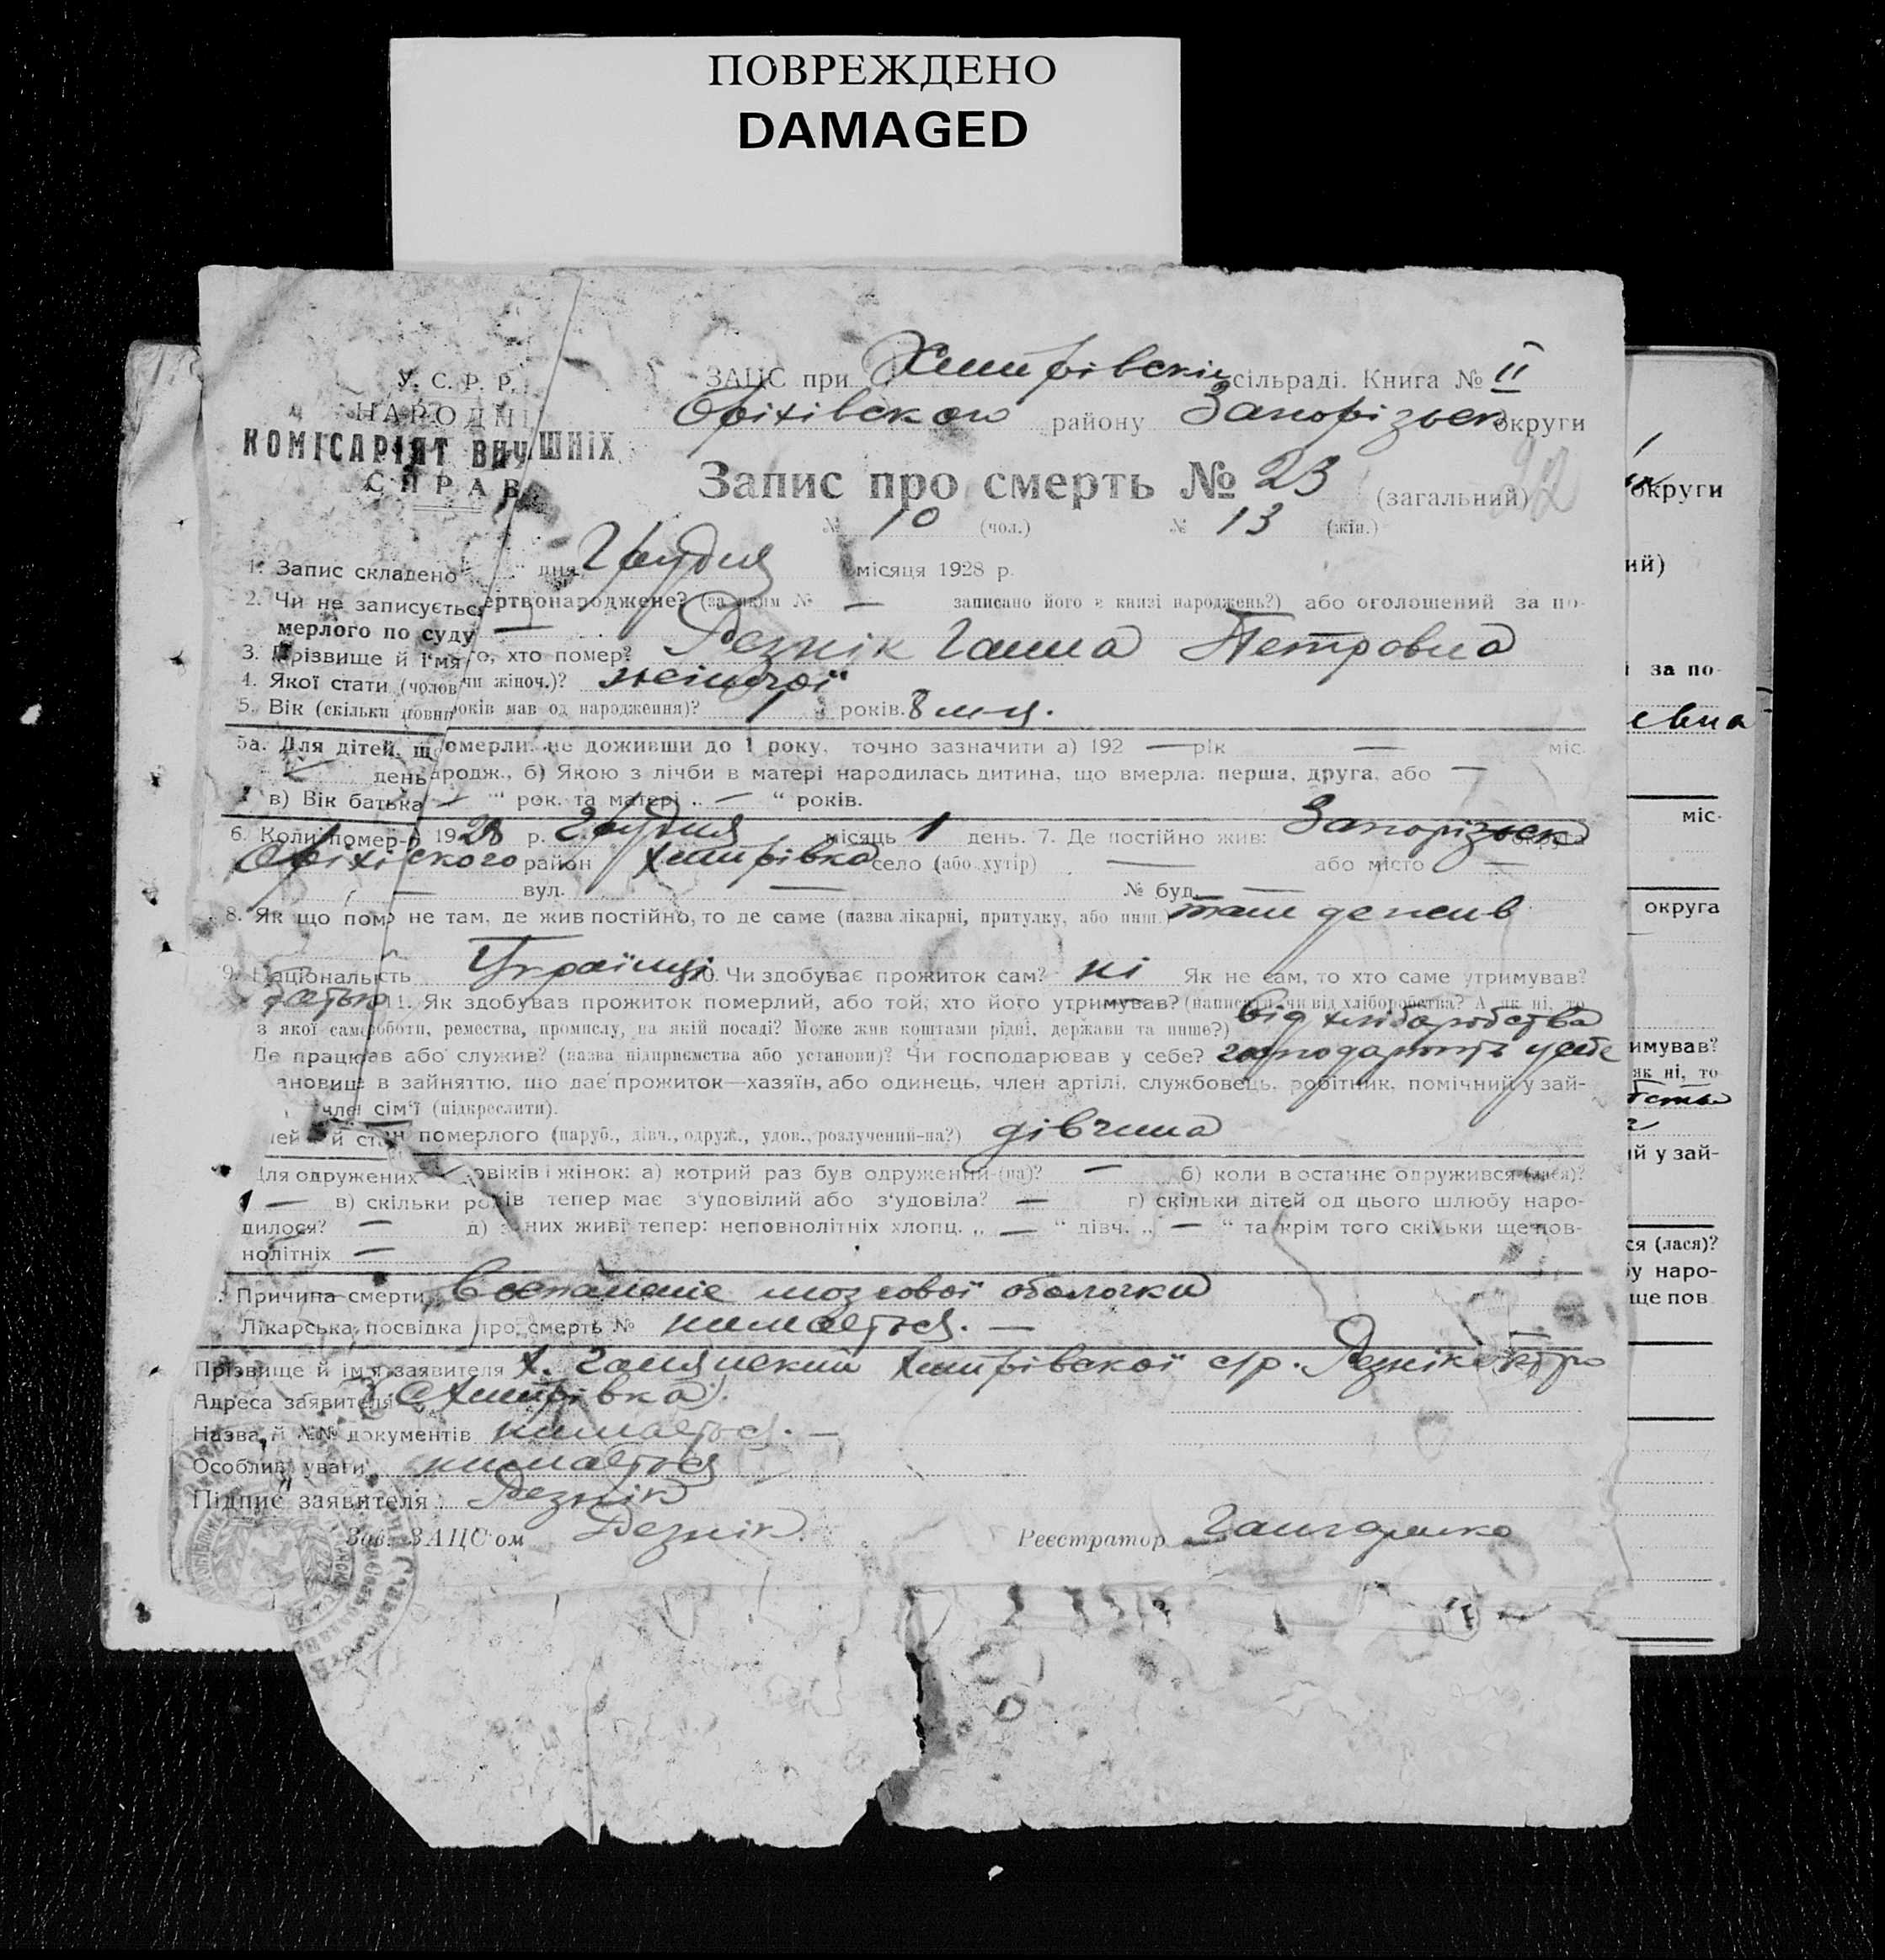 ПОВРЕЖДЕНО
DAMAGED
У. С. Р. Р.
НАРОДНІ
КОМІСАРІЯТ ВНУШНІХ
СПРАВ
ЗАЦС при Хитрівскій сільраді. Книга № II
Оріхівского району Запорізьск округи
Запис про смерть № 23 (загальний)
№ 10 (чол.) № 13 (жін.)
1. Запис складено " дня Грудня місяця 1928 р.
2. Чи не записується ертвонароджене? (за яким № — записано його в книзі народжень?) або оголошений за по-
мерлого по суду —
3. Прізвище й ім'я го, хто помер? Резнік Ганна Петровна
4. Якої стати (чолов чи жіноч.)? жіночої
5. Вік (скільки повни років мав од народження)? 1 років. 8 м-ця.
5а. Для дітей, щ омерли, не доживши до 1 року, точно зазначити а) 192 — рік — міс.
день ародж., б) Якою з лічби в матері народилась дитина, що вмерла: перша, друга, або —
в) Вік батька — " рок. та матері „ — " років.
6. Коли помер-а 1928 р. Грудня місяць 1 день. 7. Де постійно жив: Запорізьск округа
Оріхіского район Хитрівка село (або хутір) — або місто —
— вул. — № буд. —
8. Як що пом не там, де жив постійно, то де саме (назва лікарні, притулку, або инш.) там де жив
9. Національність Українці 10. Чи здобуває прожиток сам? ні Як не сам, то хто саме утримував?
батько 11. Як здобував прожиток померлий, або той, хто його утримував? (написати, чи від хліборобства? А як ні, то
з якої само роботи, ремества, промислу, на якій посаді? Може жив коштами рідні, держави та инше?) від хліборобства
Де працював або служив? (назва підприємства або установи)? Чи господарював у себе? господарють у себе
ановище в зайняттю, що дає прожиток—хазяїн, або одинець, член артілі, службовець, робітник, помічний у зай-
член сім'ї (підкреслити).
ей й стан померлого (паруб., дівч., одруж., удов., розлучений-на?) дівчина
Для одружених овіків і жінок: а) котрий раз був одружений-(на)? — б) коли востаннє одружився-(лася)?
— в) скільки років тепер має з'удовілий або з'удовіла? — г) скільки дітей од цього шлюбу наро-
дилося? — д) з них живі тепер: неповнолітніх хлопц. „ — " дівч. „ — " та крім того скільки ще пов-
нолітніх —
Причина смерти Воспаленіе мозгової оболочки
Лікарська посвідка про смерть № нимаеться. —
Прізвище й ім'я заявителя Хитрівскої с/р. Резнік Петро
Адреса заявителя С Хитрівка
Назва й №№ документів нимаеться. —
Особливі уваги нимаеться
Підпис заявителя Резнік
Зав. ЗАЦС'ом Резнік Реєстратор
округи
ий)
за по-
евна
міс.
округа
имував?
як ні, то
й у зай-
ся (лася)?
у наро-
ще пов